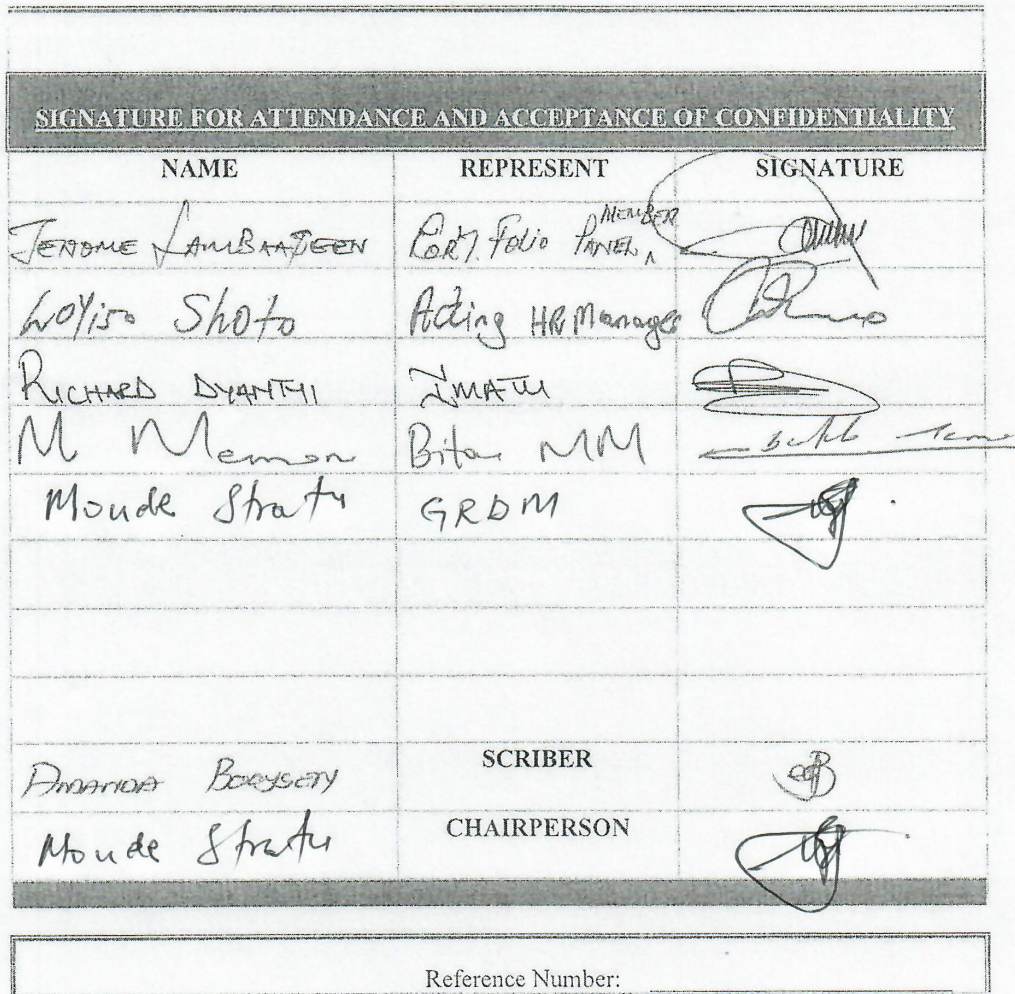 SIGNATURE FOR ATTENDANCE AND ACCEPTANCE OF CONFIDENTIALITY
NAME REPRESENT SIGNATURE
JEROME Portfolio PANEL MEMBER
Loyiso Shoto Acting HR Manager
RICHARD DYANTYI IMATU
M Memon Bitou MM
Monde Stratu GRDM
AMANDA BOOYSEN SCRIBER
Monde Stratu CHAIRPERSON
Reference Number: